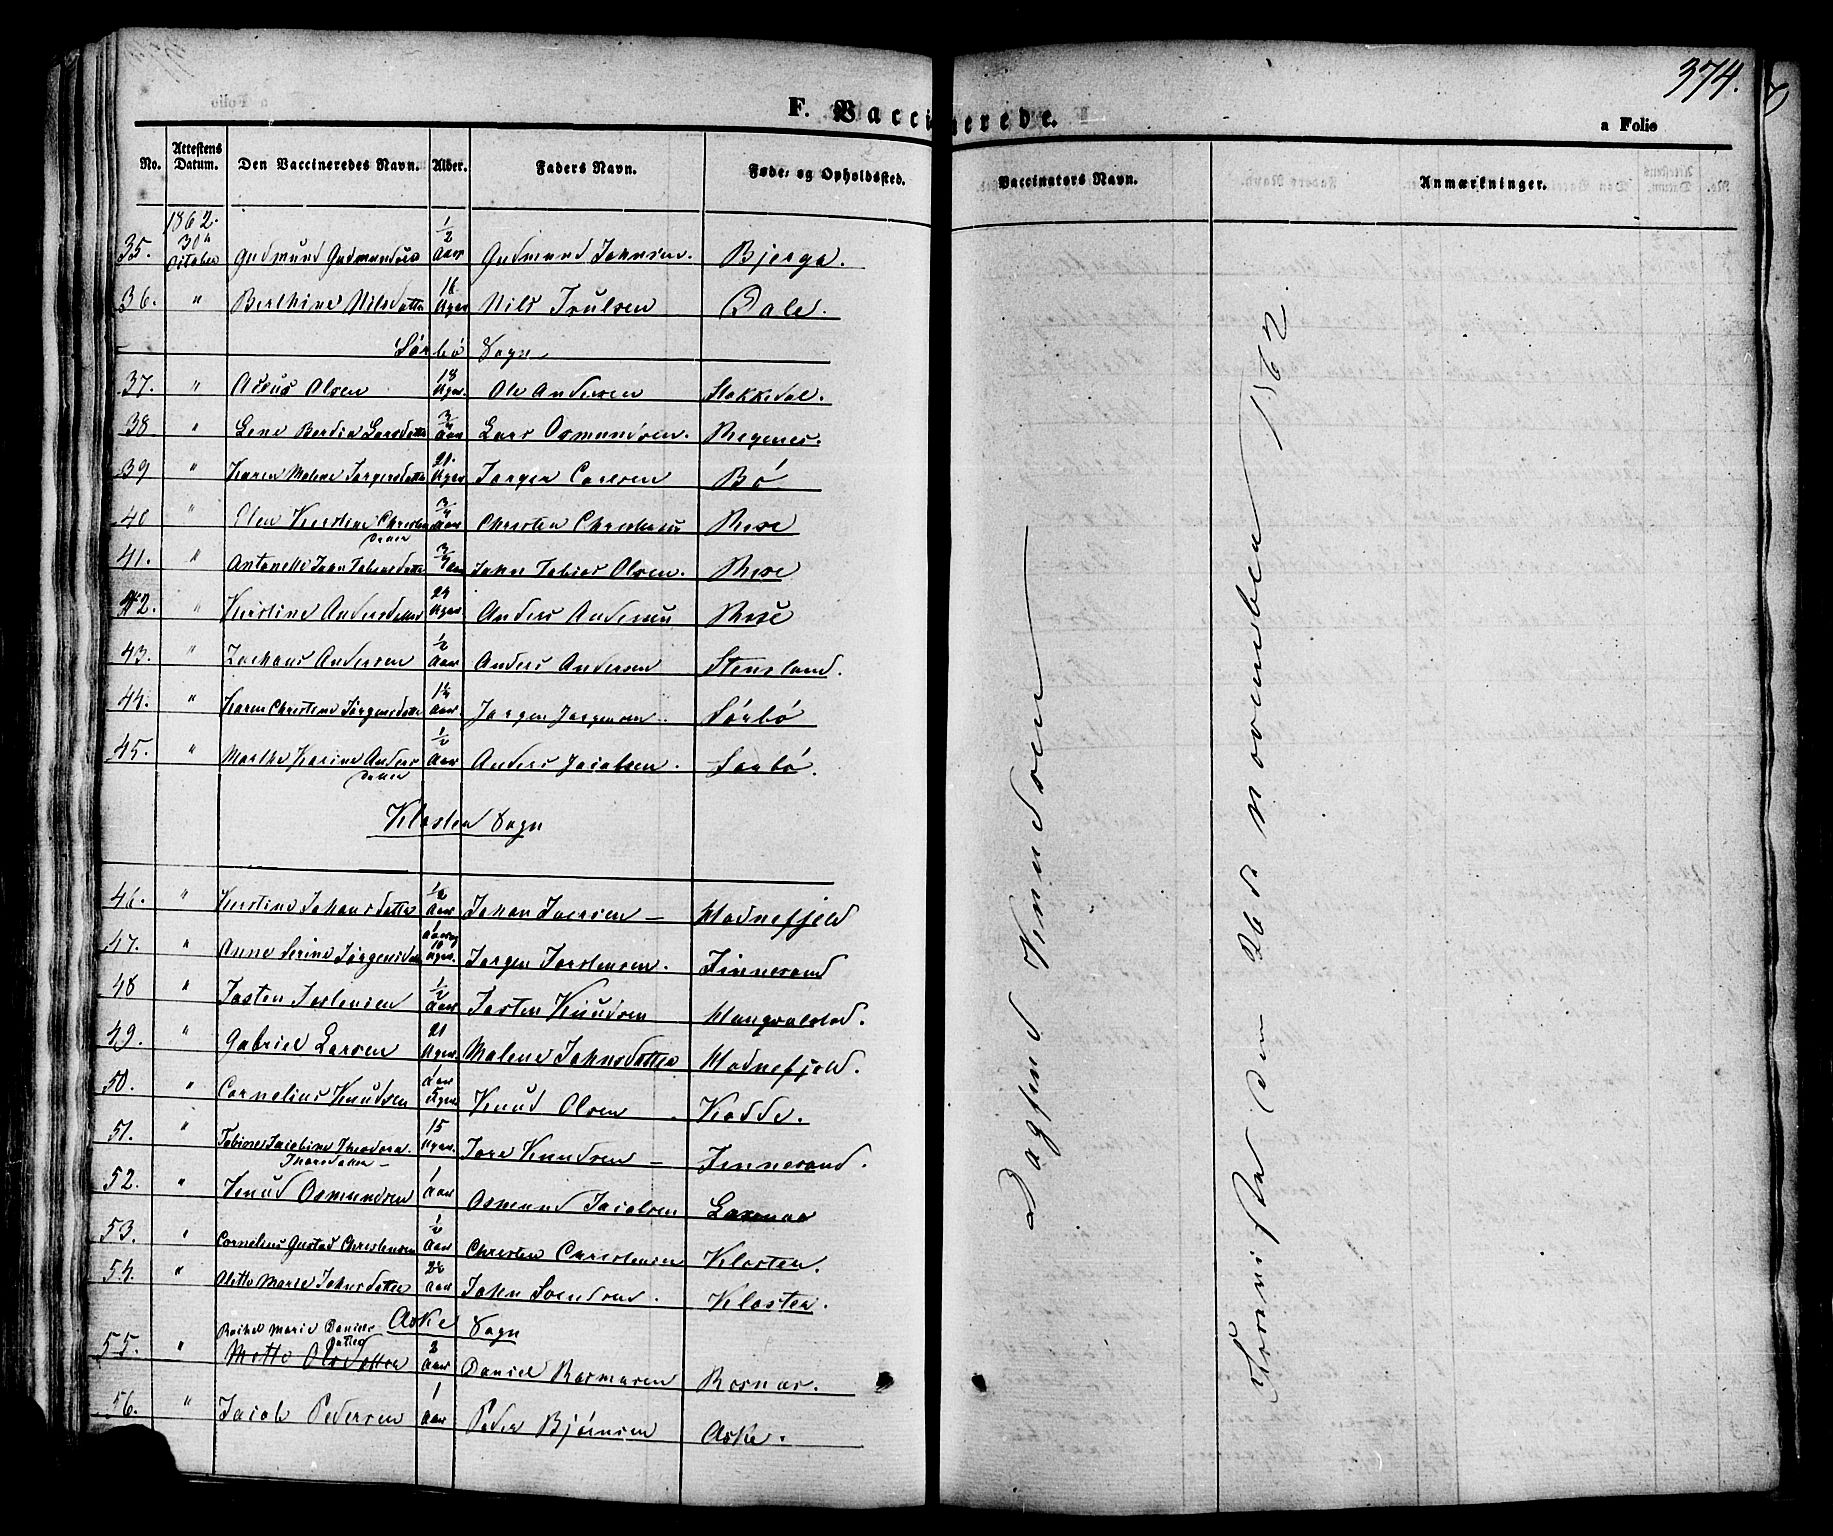 374.
F. Vaccinerede.
a Folio
No. Attestens Datum. Den Vaccineredes Navn. Alder. Faders Navn. Føde- og Opholdssted. Vaccinators Navn. Anmærkninger.
1862.
35. 30 October Gudmund Gudmundsen 1/2 Aar Gudmund Johnsen. Bjerga.
36. " Berthine Nilsdatter 16 Uger Nils Poulsen Dale.
Sørbø Sogn
37. " Olsen 18 Uger. Ole Andersen Stokkedal.
38 " Lene Berdia Larsdatter 3/4 Aar Lars Osmundsen. Regenes.
39 " Karen Malene Jørgensdatter 21. Uger Jørgen Bø
40 " Olea Kirstine Christens Datter 3/4 Aar Christen Christensen Rese
41. " Antonette John Tobiasdatter 3/4 Aar John Tobias Olsen. Rese
42. " Kirstine Andersdatter 24 Uger Anders Andersen Rese
43. " Zachaus Andersen 1/2 Aar Anders Andersen Stensland.
44. " Karen Christine Jørgensdatter 1 1/4 Aar. Jørgen Jørgensen. Sørbø
45. " Marthe Karine Anders Datter 1/2 Aar Anders Jacobsen. Sørbø.
Kloster Sogn
46. " Kirstine Johansdatter 1/2 Aar Johan Iversen — Hodnefjeld
47. " Anne Serine Jørgensdatter 1 Aar og 10 Uger. Jørgen Torstensen. Finnesand
48 " Tosten Tostensen 1/2 Aar Tosten Knudsen Hangvalstad.
49. " Gabriel Larsen 21 Uger Malene Johnsdatter Hodnefjeld.
50. " Cornelius Knudsen 1 Aar 5 Uger Knud Olsen Hodde.
51. " Tobine Jacobine Theodora Thorsdatter — 15 Uger. Tore Knudsen — Finnesand.
52. " Knud Osmundsen 1 Aar Osmund Jacobsen
53. " Cornelius Gustad Christensen 1/2 Aar Christen Christensen Kloster.
54. " Olette Marie Johnsdatter Aar John Svendsen. Kloster.
Aske Sogn
55. " Rachel Marie Daniels Datter Mette Olsdatter 2 Aar Daniel Rasmusen Rosnas.
56. " Jacob Pedersen 1 Aar Peder Bjørnsen Aske.
Dagfind Vinndsen
den 26de november 1862.